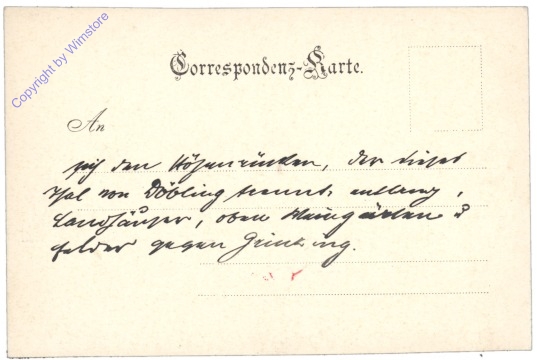 Copyright by Wimstore
Correspondenz-Karte.
An
sich den Höhenrücken, der dieses
Thal von Döbling trennt, entlang,
Landhäuser, oben Weingärten &
Felder gegen Grinzing.